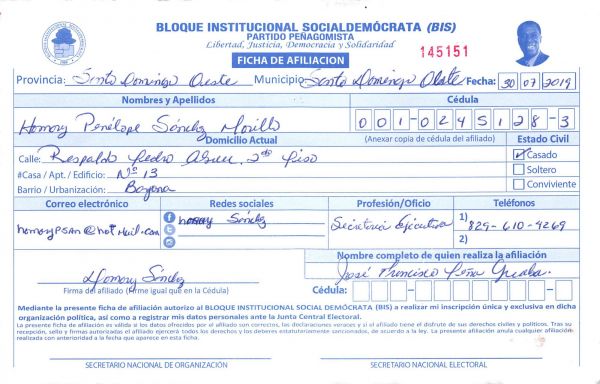 BLOQUE INSTITUCIONAL SOCIALDEMÓCRATA (BIS)
PARTIDO PEÑAGOMISTA
Libertad, Justicia, Democracia y Solidaridad
FICHA DE AFILIACION
145151
Provincia: Santo Domingo Oeste Municipio: Santo Domingo Oeste Fecha: 30 07 2019
Nombres y Apellidos Cédula
Homory Penélope Sánchez Morillo 001-0245128-3
Domicilio Actual (Anexar copia de cédula del afiliado) Estado Civil
Calle: Respaldo Pedro 2do Piso Casado
#Casa / Apt. / Edificio: Nº 13 Soltero
Barrio / Urbanización: Bayona Conviviente
Correo electrónico Redes sociales Profesión/Oficio Teléfonos
homorypsan@hotmail.com homory Sánchez Secretaria Ejecutiva 1) 829-610-4269
2)
Nombre completo de quien realiza la afiliación
Homory Sánchez José Francisco Peña
Firma del afiliado (Firme igual que en la Cédula) Cédula:
Mediante la presente ficha de afiliación autorizo al BLOQUE INSTITUCIONAL SOCIAL DEMÓCRATA (BIS) a realizar mi inscripción única y exclusiva en dicha
organización política, así como a registrar mis datos personales ante la Junta Central Electoral.
La presente ficha de afiliación es válida si los datos ofrecidos por el afiliado son correctos, las declaraciones veraces y si el afiliado tiene el disfrute de sus derechos civiles y políticos. Tras su
recepción, sello y firmas autorizadas el afiliado ejercerá todos los derechos y los deberes estatutariamente sancionados, de acuerdo a la ley. La presente afiliación anula cualquier afiliación
realizada con anterioridad a la fecha que aparece en esta ficha.
SECRETARIO NACIONAL DE ORGANIZACIÓN SECRETARIO NACIONAL ELECTORAL